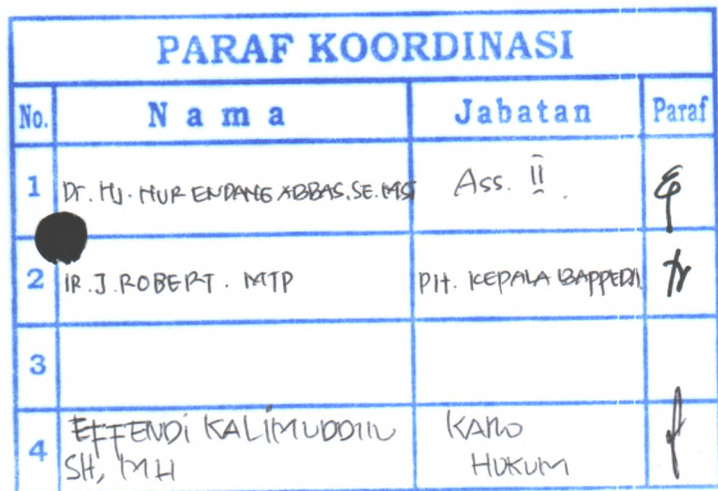 PARAF KOORDINASI
No. Nama Jabatan Paraf
1 Dr. Hj. NUR ENDANG ABBAS, SE. MSi Ass. II.
2 IR. J. ROBERT. MTP PH. KEPALA BAPPEDA
3
4 EFFENDI KALIMUDDIN KARO
SH, MH HUKUM